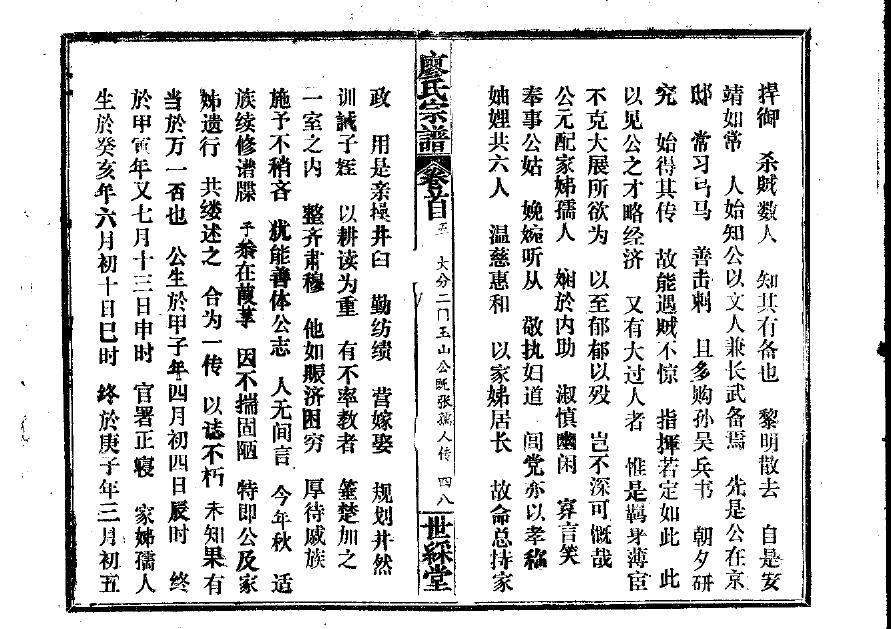 捍御 杀贼数人 知其有备也 黎明散去 自是安
靖如常 人始知公以文人兼长武备焉 先是公在京
邸 常习弓马 善击刺 且多购孙吴兵书 朝夕研
究 始得其传 故能遇贼不惊 指挥若定如此 此
以见公之才略经济 又有大过人者 惟是羁身薄宦
不克大展所欲为 以至郁郁以殁 岂不深可慨哉
公元配家姊孺人 娴於内助 淑慎幽闲 寡言笑
奉事公姑 婉婉听从 敬执妇道 闾党亦以孝称
妯娌共六人 温慈惠和 以家娣居长 故命总持家
廖氏宗譜 卷首 五 大分二门玉山公既张孺人传 四八 世綵堂
政 用是亲操井臼 勤纺绩 营嫁娶 规划井然
训誡子姪 以耕读为重 有不率教者 箠楚加之
一室之内 整齐肃穆 他如赈济困穷 厚待戚族
施予不稍吝 犹能善体公志 人无间言 今年秋 适
族续修谱牒 予忝在葭莩 因不揣固陋 特即公及家
姊遗行 共缕述之 合为一传 以誌不朽 未知果有
当於万一否也 公生於甲子年四月初四日辰时 终
於甲寅年又七月十三日申时 官署正寝 家姊孺人
生於癸亥年六月初十日巳时 终於庚子年三月初五